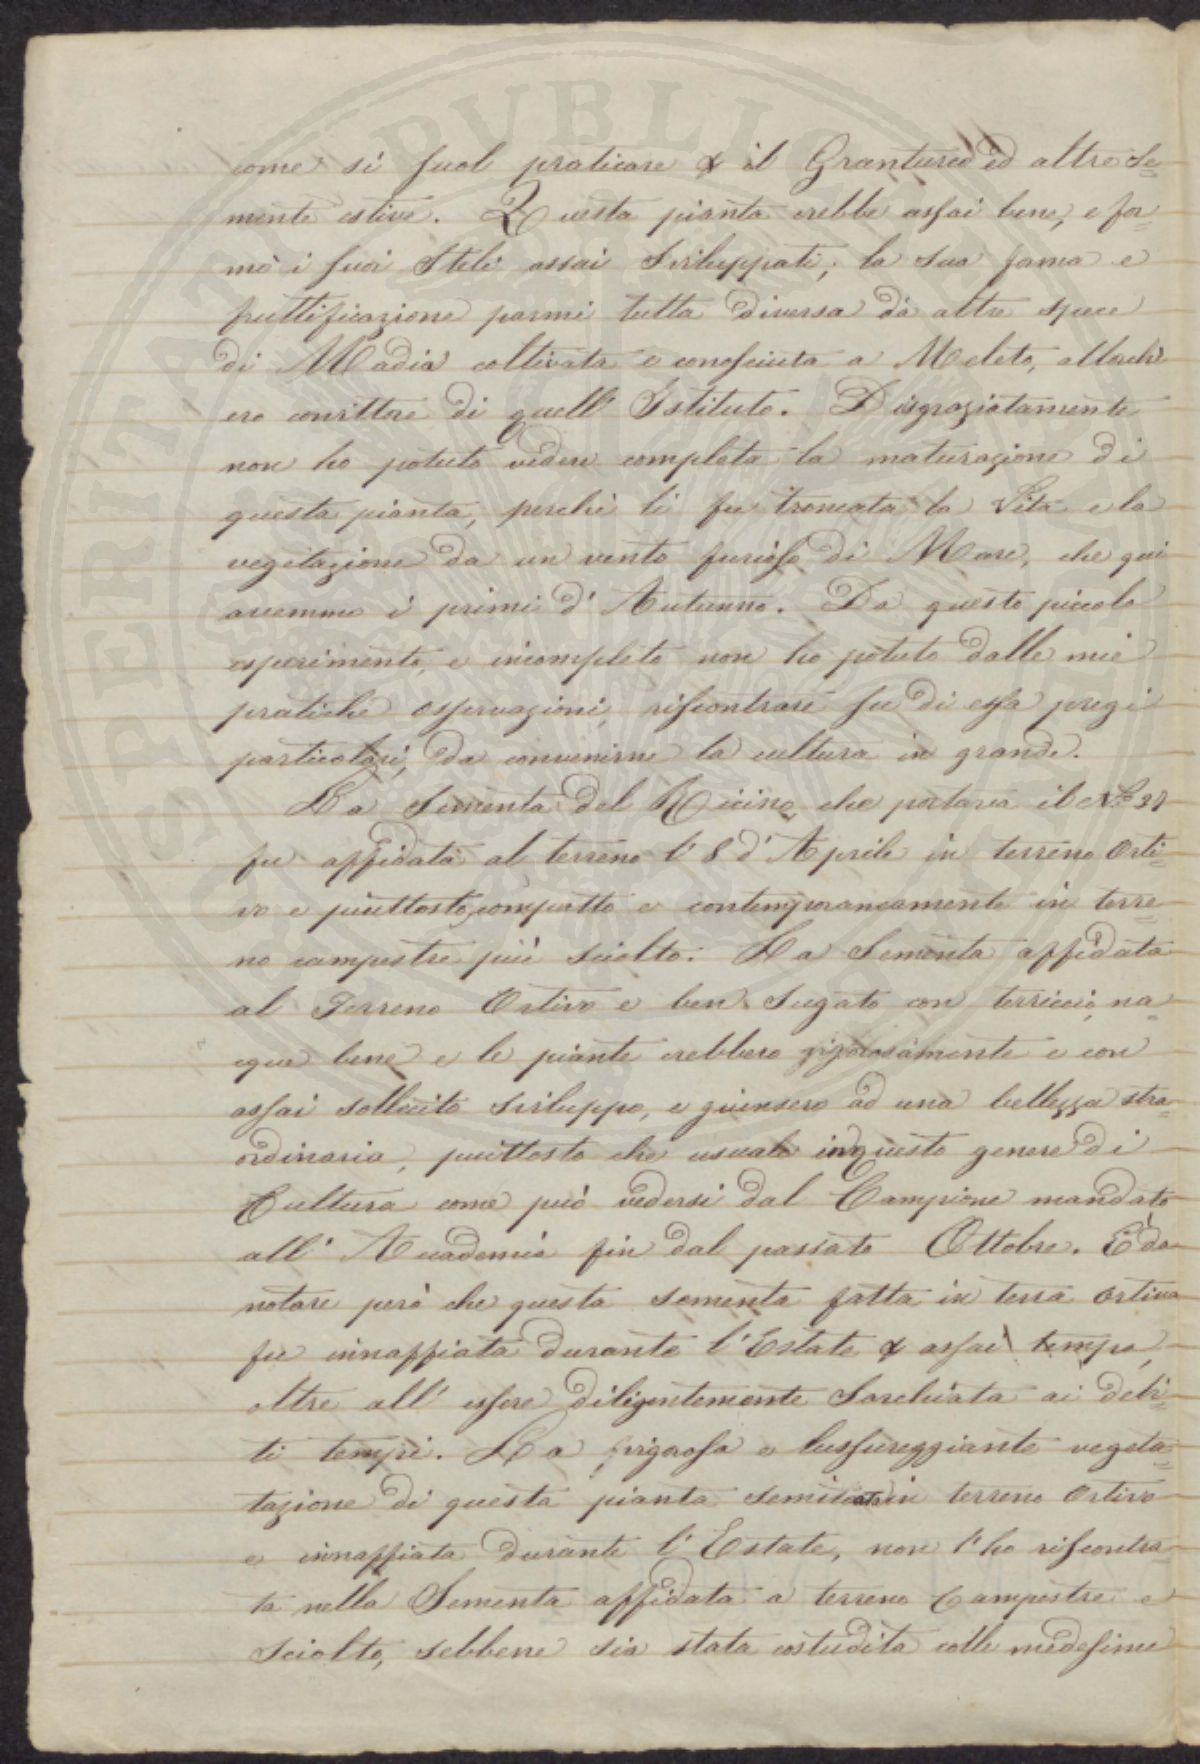 come si suol praticare & il Granturco ed altre Se=
mente estive. Questa pianta crebbe assai bene, e for=
mò i suoi Steli assai Sviluppati; la sua forma e
fruttificazione parmi tutta diversa da altre specie
di Madia coltivata e conosciuta a Meleto, allorchè
ero convittore di quell' Istituto. Disgraziatamente
non ho potuto vedere completa la maturazione di
questa pianta, perchè li fu troncata la Vita e la
vegetazione da un vento furioso di Mare, che qui
avemmo i primi d' Autunno. Da questo piccolo
esperimento, e incompleto non ho potuto dalle mie
pratiche osservazioni, riscontrare su di essa pregi
particolari, da convenirne la cultura in grande.
La Sementa del Ricino che portava il N.º 37
fu affidata al terreno l' 8 d' Aprile in terreno Orti=
vo e piuttosto compatto e contemporaneamente in terre=
no campestre più sciolto. La Sementa affidata
al Terreno Ortivo e ben Sugato con terriccio, na=
cque bene e le piante crebbero vigorosamente e con
assai sollecito sviluppo, e giunsero ad una bellezza stra=
ordinaria, piuttosto che usuale in questo genere di
Cultura come può vedersi dal Campione mandato
all' Accademia fin dal passato Ottobre. È da
notare però che questa sementa fatta in terra Ortiva
fu innaffiata durante l' Estate & assai tempo,
oltre all' essere diligentemente Sarchiata ai debi=
ti tempi. La vigorosa e lussureggiante vegeta=
tazione di questa pianta seminata in terreno Ortivo
e innaffiata durante l' Estate, non l' ho riscontra=
ta nella Sementa affidata a terreno Campestre e
Sciolto, sebbene sia stata custudita colle medesime
SPERITATI PUBLICAE